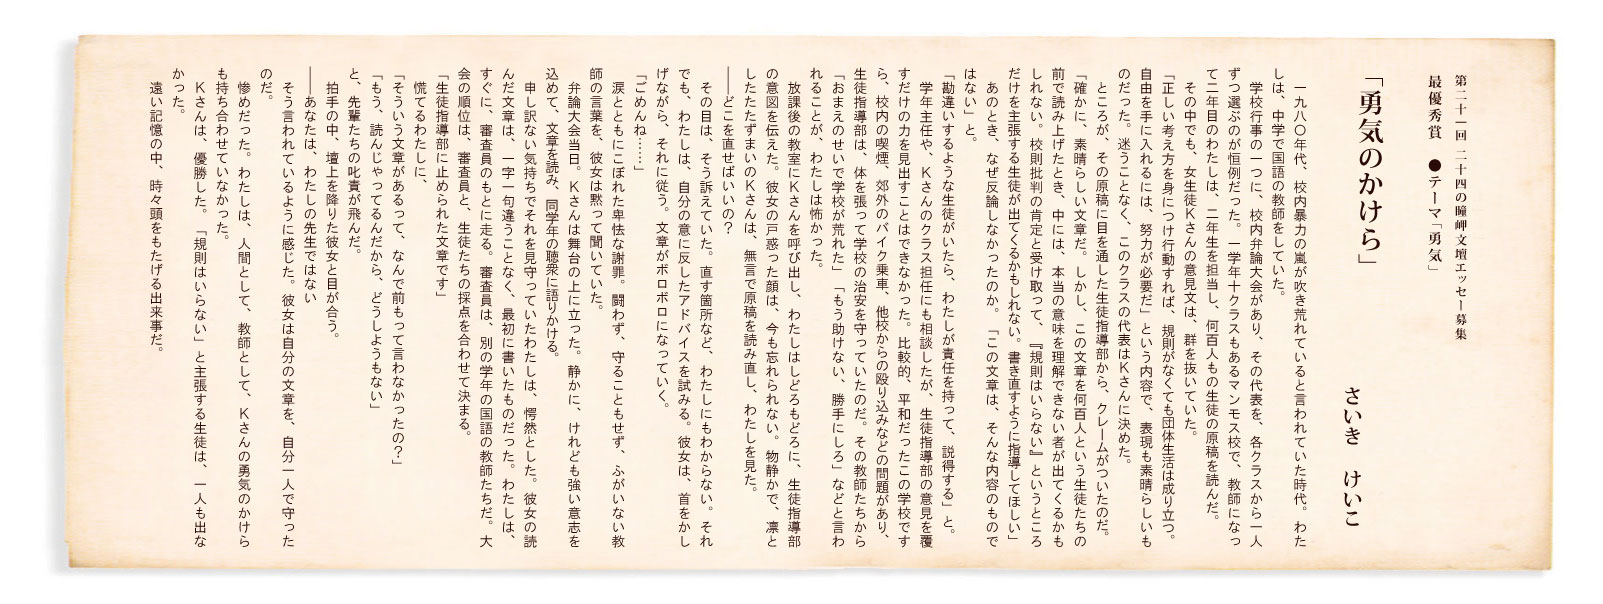 第二十一回 二十四の瞳岬文壇エッセー募集
最優秀賞　●テーマ「勇気」
「勇気のかけら」
さいき　けいこ
一九八〇年代、校内暴力の嵐が吹き荒れていると言われていた時代。わた
しは、中学で国語の教師をしていた。
学校行事の一つに、校内弁論大会があり、その代表を、各クラスから一人
ずつ選ぶのが恒例だった。一学年十クラスもあるマンモス校で、教師になっ
て二年目のわたしは、二年生を担当し、何百人もの生徒の原稿を読んだ。
その中でも、女生徒Ｋさんの意見文は、群を抜いていた。
「正しい考え方を身につけ行動すれば、規則がなくても団体生活は成り立つ。
自由を手に入れるには、努力が必要だ」という内容で、表現も素晴らしいも
のだった。迷うことなく、このクラスの代表はＫさんに決めた。
ところが、その原稿に目を通した生徒指導部から、クレームがついたのだ。
「確かに、素晴らしい文章だ。しかし、この文章を何百人という生徒たちの
前で読み上げたとき、中には、本当の意味を理解できない者が出てくるかも
しれない。校則批判の肯定と受け取って、『規則はいらない』というところ
だけを主張する生徒が出てくるかもしれない。書き直すように指導してほしい」
あのとき、なぜ反論しなかったのか。「この文章は、そんな内容のもので
はない」と。
「勘違いするような生徒がいたら、わたしが責任を持って、説得する」と。
学年主任や、Ｋさんのクラス担任にも相談したが、生徒指導部の意見を覆
すだけの力を見出すことはできなかった。比較的、平和だったこの学校です
ら、校内の喫煙、郊外のバイク乗車、他校からの殴り込みなどの問題があり、
生徒指導部は、体を張って学校の治安を守っていたのだ。その教師たちから
「おまえのせいで学校が荒れた」「もう助けない、勝手にしろ」などと言わ
れることが、わたしは怖かった。
放課後の教室にＫさんを呼び出し、わたしはしどろもどろに、生徒指導部
の意図を伝えた。彼女の戸惑った顔は、今も忘れられない。物静かで、凛と
したたたずまいのＫさんは、無言で原稿を読み直し、わたしを見た。
――どこを直せばいいの？
その目は、そう訴えていた。直す箇所など、わたしにもわからない。それ
でも、わたしは、自分の意に反したアドバイスを試みる。彼女は、首をかし
げながら、それに従う。文章がボロボロになっていく。
「ごめんね……」
涙とともにこぼれた卑怯な謝罪。闘わず、守ることもせず、ふがいない教
師の言葉を、彼女は黙って聞いていた。
弁論大会当日。Ｋさんは舞台の上に立った。静かに、けれども強い意志を
込めて、文章を読み、同学年の聴衆に語りかける。
申し訳ない気持ちでそれを見守っていたわたしは、愕然とした。彼女の読
んだ文章は、一字一句違うことなく、最初に書いたものだった。わたしは、
すぐに、審査員のもとに走る。審査員は、別の学年の国語の教師たちだ。大
会の順位は、審査員と、生徒たちの採点を合わせて決まる。
「生徒指導部に止められた文章です」
慌てるわたしに、
「そういう文章があるって、なんで前もって言わなかったの？」
「もう、読んじゃってるんだから、どうしようもない」
と、先輩たちの叱責が飛んだ。
拍手の中、壇上を降りた彼女と目が合う。
――あなたは、わたしの先生ではない
そう言われているように感じた。彼女は自分の文章を、自分一人で守った
のだ。
惨めだった。わたしは、人間として、教師として、Ｋさんの勇気のかけら
も持ち合わせていなかった。
Ｋさんは、優勝した。「規則はいらない」と主張する生徒は、一人も出な
かった。
遠い記憶の中、時々頭をもたげる出来事だ。